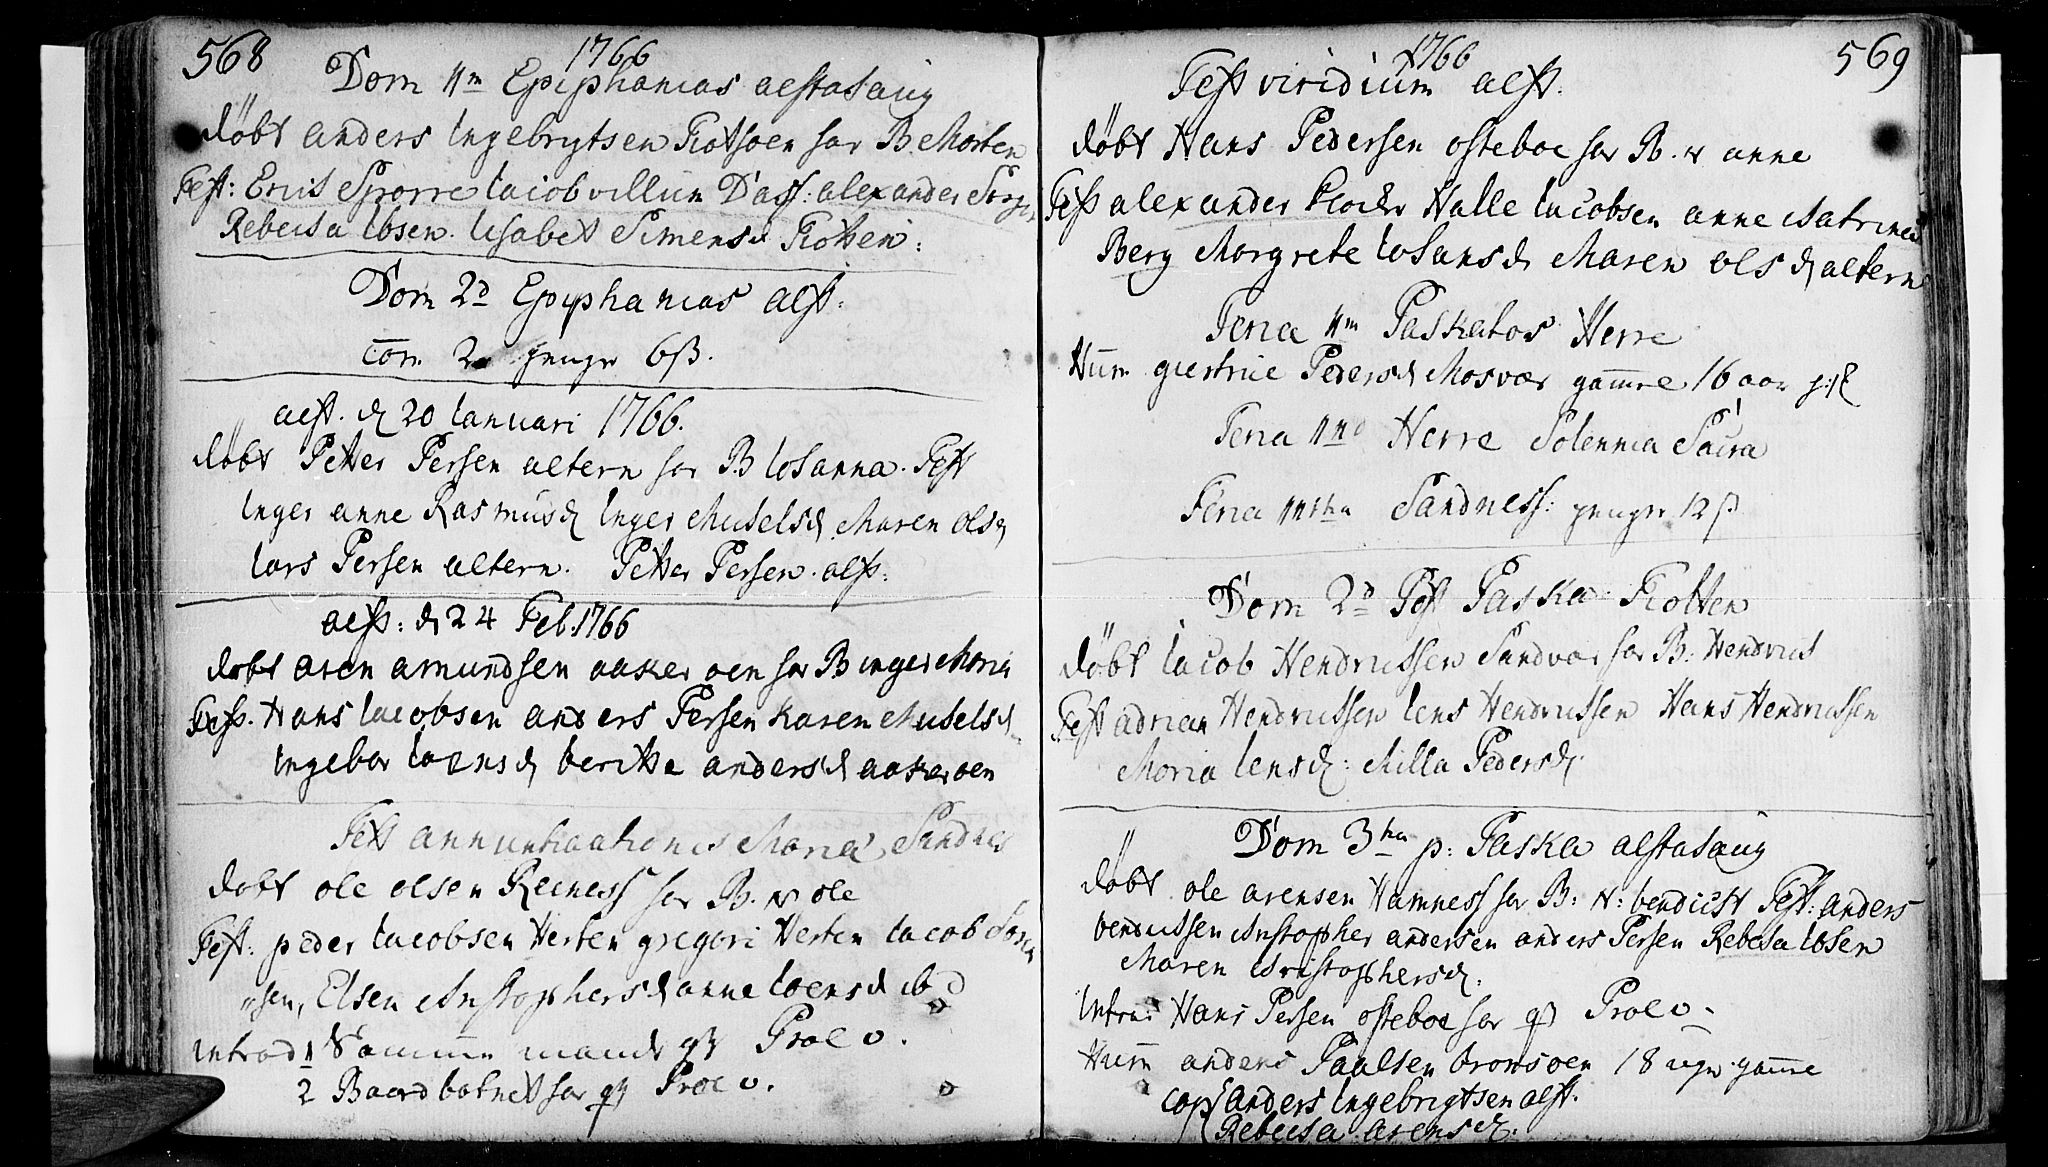 568
1766
Dom 11m Epiphanias alstahaug
døbt anders Ingebrytsen Rotsøen har B. Morten
Test: Eric Sporre Iacob villum Dass: alexander
Rebecka Ibsen. lisabet Simensd Rotten:
Dom 2d Epiphanias alst:
com 2 penge 6ß.
alst. d 20 Ianuari 1766.
døbt Petter Persen altern har B Iohanna. Test
Inger anne Rasmusd Inger Mickelsd Maren olsd
lars Persen altern. Petter Persen. alst:
alst: d 24 Feb. 1766
døbt aren amundsen aakerøen har B inger Maria
Test. Hans Iacobsen anders Persen Karen Mickelsd
Ingebor Ioensd beritte andersd aakerøen
Fest annuntiationis Maria Sandnes
døbt ole olsen Reiness har B. N ole
Test. peder Iacobsen Herten gregori Herten Iacob Soren
sen, Elsen Christophersd anne Ioensd ibd
introd 1 mands qv Prolo.
2 Baardbotnet har qv Prolo.
569
1766
Fest viridium alst.
døbt Hans Pedersen østeboe har B. N anne
Test alexander Klocker Halle Iacobsen anne Catrine
Berg Margrete Iohansd Maren olsd altern
Feria 1m Paskatos Herrø
Hum giertrue Pedersd Mosvær gamme 16 aar
Feria 2nd Herrø Solennia Sacra
Feria 3tia Sandness: penge 12 ß
Dom 2d Post Paska Rotten
døbt Iacob Hendricssen Sandvær har B: Hendrict
Test adrian Hendricssen Iens Hendricssen Hans Hendricssen
Maria Iensd: Milla Pedersd:
Dom 3tia p: Paska alstahaug
døbt ole arensen Hamness har B: N: bendict Test: anders
bendicssen Christopher andersen anders Persen Rebecka Ibsen
Maren Christophersd.
Introd: Hans Persen østeboe har qv Prolo
Hum anders Paalsen bronsøen 18 uger gamme
cop: anders Ingebrigtsen alst.
Rebecka arensd.